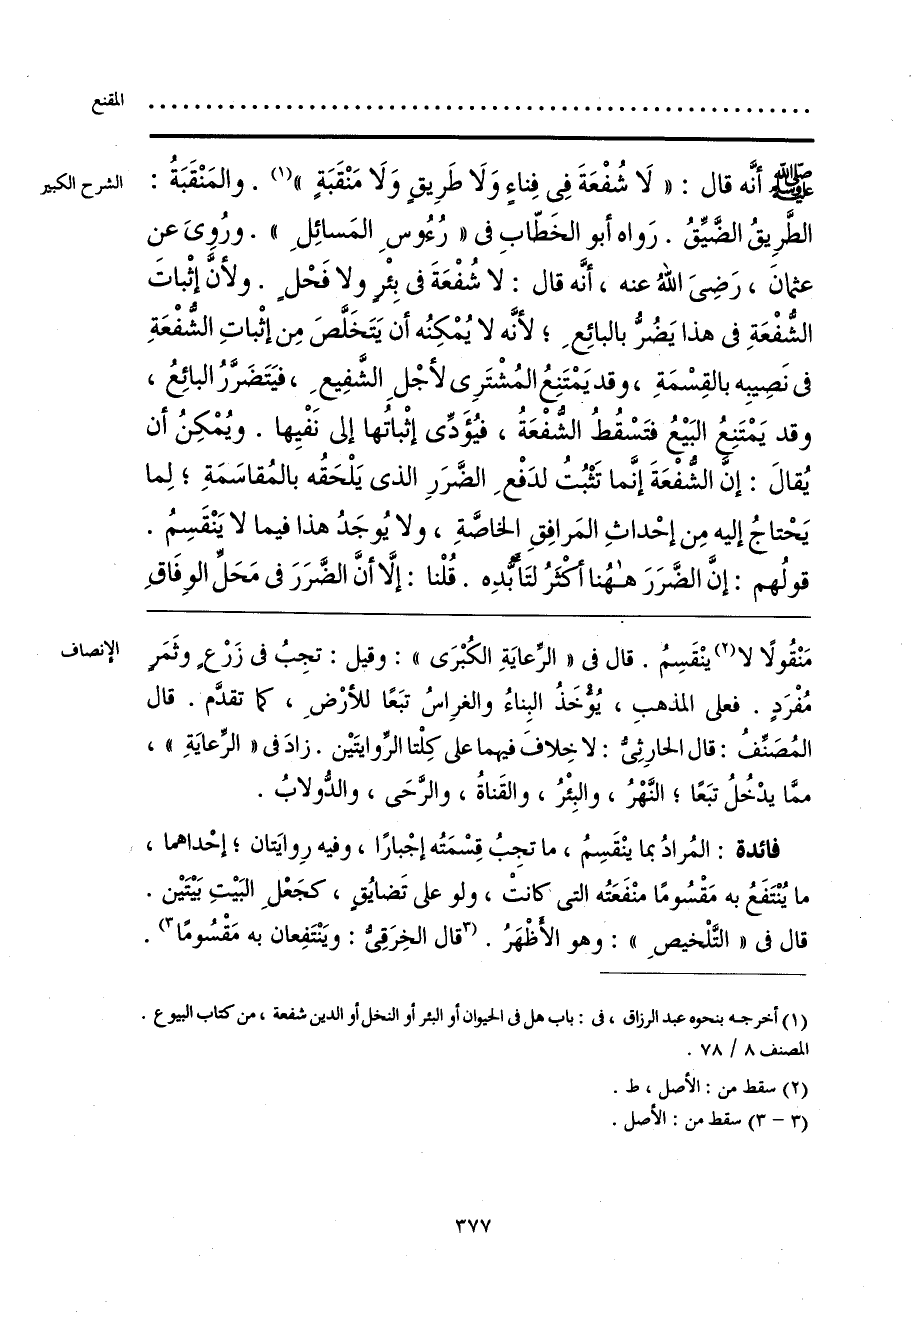 المقنع ...........................................................
الشرح الكبير
ﷺ أنَّه قال : « لَا شُفْعَةَ فِى فِناءٍ وَلَا طَرِيقٍ وَلَا مَنْقَبَةٍ »(١) . والمَنْقَبَةُ :
الطَّرِيقُ الضَّيِّقُ . رَواه أبو الخَطّابِ فى « رُءُوسِ المَسائلِ » . ورُوِىَ عن
عثمانَ ، رَضِىَ اللهُ عنه ، أنَّه قال : لا شُفْعَةَ فى بِئْرٍ ولا فَحْلٍ . ولأنَّ إثْباتَ
الشُّفْعَةِ فى هذا يَضُرُّ بالبائعِ ؛ لأنَّه لا يُمْكِنُه أن يَتَخَلَّصَ مِن إثْباتِ الشُّفْعَةِ
فى نَصِيبِه بالقِسْمَةِ ، وقد يَمْتَنِعُ المُشْتَرِى لأجْلِ الشَّفِيعِ ، فيَتَضَرَّرُ البائِعُ ،
وقد يَمْتَنِعُ البَيْعُ فتَسْقُطُ الشُّفْعَةُ ، فيُؤَدِّى إثْباتُها إلى نَفْيِها . ويُمْكِنُ أن
يُقالَ : إنَّ الشُّفْعَةَ إنَّما تَثْبُتُ لدَفْعِ الضَّرَرِ الذى يَلْحَقُه بالمُقاسَمَةِ ؛ لِما
يَحْتاجُ إليه مِن إحْداثِ المَرافِقِ الخاصَّةِ ، ولا يُوجَدُ هذا فيما لا يَنْقَسِمُ .
قولُهم : إنَّ الضَّرَرَ هـٰهُنا أكْثَرُ لتَأَبُّدِه . قُلْنا : إلَّا أنَّ الضَّرَرَ فى مَحَلِّ الوِفَاقِ
الإنصاف
مَنْقُولًا لا(٢) يَنْقَسِمُ . قال فى « الرِّعايَةِ الكُبْرَى » : وقيل : تجِبُ فى زَرْعٍ وثَمَرٍ
مُفْرَدٍ . فعلى المذهبِ ، يُؤْخَذُ البِناءُ والغِراسُ تبَعًا للأرْضِ ، كما تقدَّم . قال
المُصَنِّفُ : قال الحارِثِىُّ : لا خِلافَ فيهما على كِلْتا الرِّوايتَيْن . زادَ فى « الرِّعايَةِ » ،
ممَّا يدْخُلُ تبَعًا ؛ النَّهْرُ ، والبِئْرُ ، والقَناةُ ، والرَّحَى ، والدُّولابُ .
فائدة : المُرادُ بما ينْقَسِمُ ، ما تجِبُ قِسْمَتُه إجْبارًا ، وفيه رِوايَتان ؛ إحْداهما ،
ما يُنْتَفَعُ به مَقْسُومًا منْفَعَتُه التى كانتْ ، ولو على تَضايُقٍ ، كجَعْلِ البَيْتِ بَيْتَيْن .
قال فى « التَّلْخيصِ » : وهو الأَظْهَرُ . (٣قال الخِرَقِىُّ : ويَنْتَفِعان به مَقْسُومًا٣) .
(١) أخرجه بنحوه عبد الرزاق ، فى : باب هل فى الحيوان أو البئر أو النخل أو الدين شفعة ، من كتاب البيوع .
المصنف ٨ / ٧٨ .
(٢) سقط من : الأصل ، ط .
(٣ – ٣) سقط من : الأصل .
٣٧٧